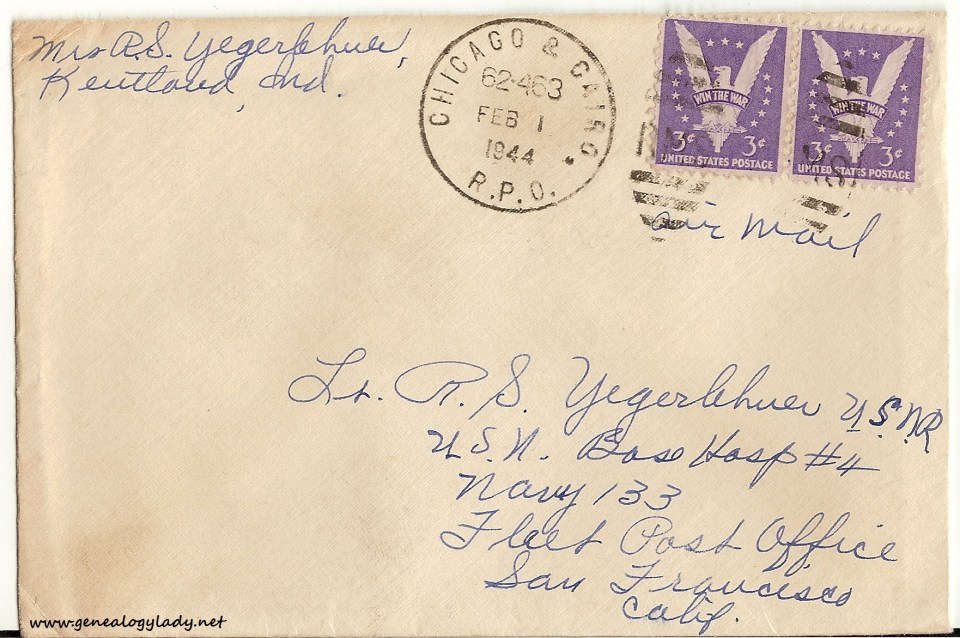 Mrs R.S. Yegerlehner,
Kentland, Ind.
CHICAGO & CAIRO
62-463
FEB 1
1944
R.P.O.
WIN THE WAR
3¢ 3¢
UNITED STATES POSTAGE
WIN THE WAR
3¢ 3¢
UNITED STATES POSTAGE
air mail
Lt. R. S. Yegerlehner U.S.N.R
U.S.N. Base Hosp #4
Navy 133
Fleet Post Office
San Francisco
Calif.
www.genealogylady.net